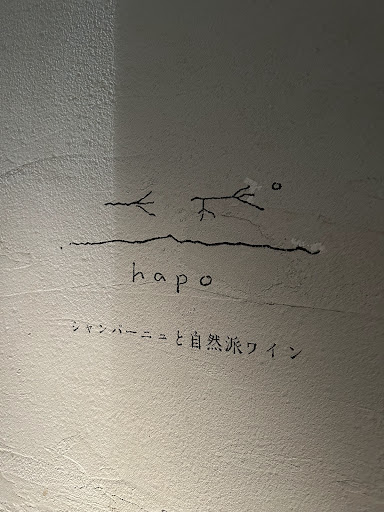 hapo
シャンパーニュと自然派ワイン